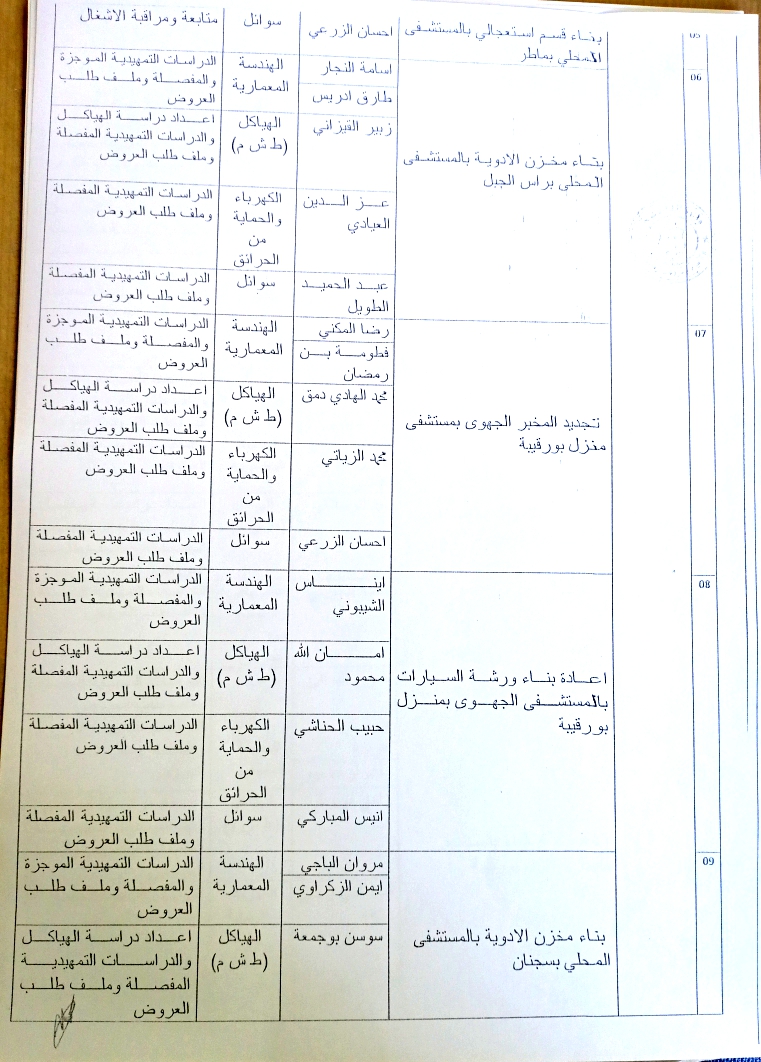 05
بناء قسم استعجالي بالمستشفى
المحلي بماطر
احسان الزرعي
سوائل
متابعة ومراقبة الاشغال
06
بناء مخزن الادوية بالمستشفى
المحلي براس الجبل
اسامة النجار
طارق ادريس
الهندسة
المعمارية
الدراسات التمهيدية الموجزة
والمفصلة وملف طلب
العروض
زبير القيزاني
الهياكل
(ط ش م)
اعداد دراسة الهياكل
والدراسات التمهيدية المفصلة
وملف طلب العروض
عز الدين
العيادي
الكهرباء
والحماية
من
الحرائق
الدراسات التمهيدية المفصلة
وملف طلب العروض
عبد الحميد
الطويل
سوائل
الدراسات التمهيدية المفصلة
وملف طلب العروض
07
تجديد المخبر الجهوى بمستشفى
منزل بورقيبة
رضا المكني
فطومة بن
رمضان
الهندسة
المعمارية
الدراسات التمهيدية الموجزة
والمفصلة وملف طلب
العروض
محمد الهادي دمق
الهياكل
(ط ش م)
اعداد دراسة الهياكل
والدراسات التمهيدية المفصلة
وملف طلب العروض
محمد الزياتي
الكهرباء
والحماية
من
الحرائق
الدراسات التمهيدية المفصلة
وملف طلب العروض
احسان الزرعي
سوائل
الدراسات التمهيدية المفصلة
وملف طلب العروض
08
اعادة بناء ورشة السيارات
بالمستشفى الجهوى بمنزل
بورقيبة
ايناس
الشيبوني
الهندسة
المعمارية
الدراسات التمهيدية الموجزة
والمفصلة وملف طلب
العروض
امان الله
محمود
الهياكل
(ط ش م)
اعداد دراسة الهياكل
والدراسات التمهيدية المفصلة
وملف طلب العروض
حبيب الحناشي
الكهرباء
والحماية
من
الحرائق
الدراسات التمهيدية المفصلة
وملف طلب العروض
انيس المباركي
سوائل
الدراسات التمهيدية المفصلة
وملف طلب العروض
09
بناء مخزن الادوية بالمستشفى
المحلي بسجنان
مروان الباجي
ايمن الزكراوي
الهندسة
المعمارية
الدراسات التمهيدية الموجزة
والمفصلة وملف طلب
العروض
سوسن بوجمعة
الهياكل
(ط ش م)
اعداد دراسة الهياكل
والدراسات التمهيدية
المفصلة وملف طلب
العروض